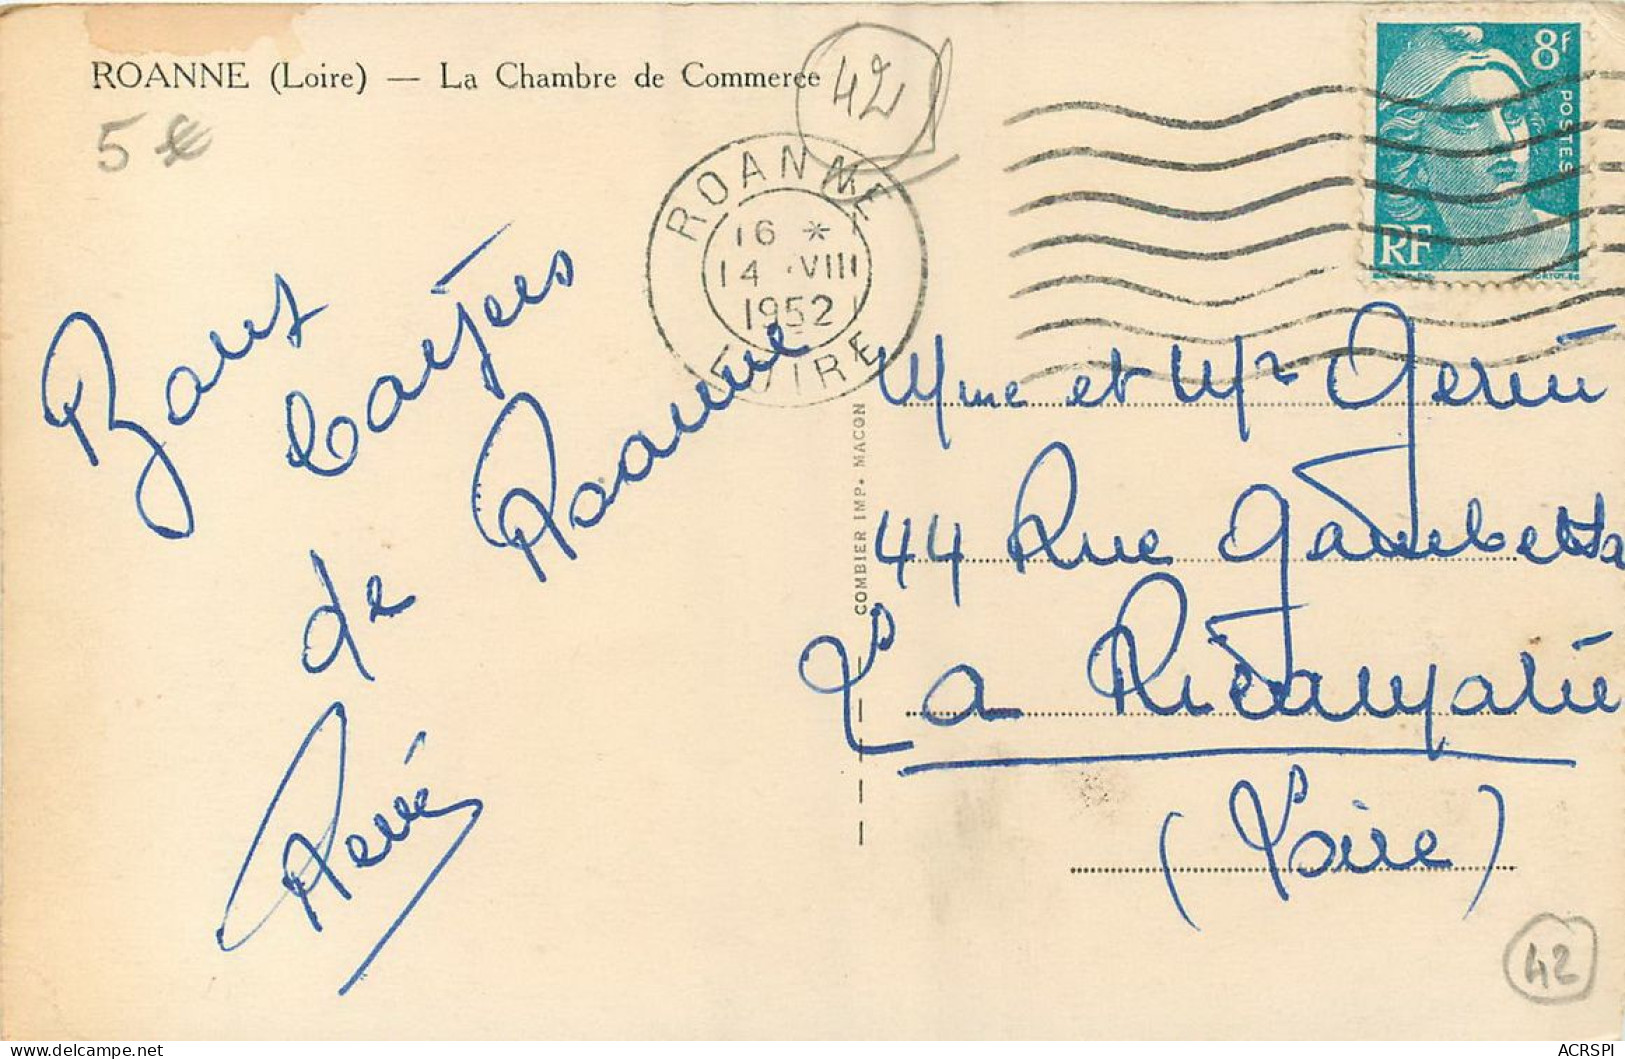 ROANNE (Loire) — La Chambre de Commerce
5 €
42
ROANNE
16 *
14 · VIII
1952
LOIRE
8F
POSTES
RF
Bons
baisers
de Roanne
René
COMBIER IMP. MACON
Mme et Mr Gerin
44 Rue Gambetta
La Ricamarie
(Loire)
42
ACRSPI